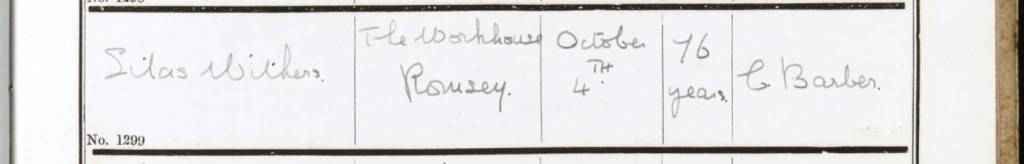 Silas Withers.
The Workhouse
Romsey.
October
4TH
76
years.
C Barber.
No. 1299